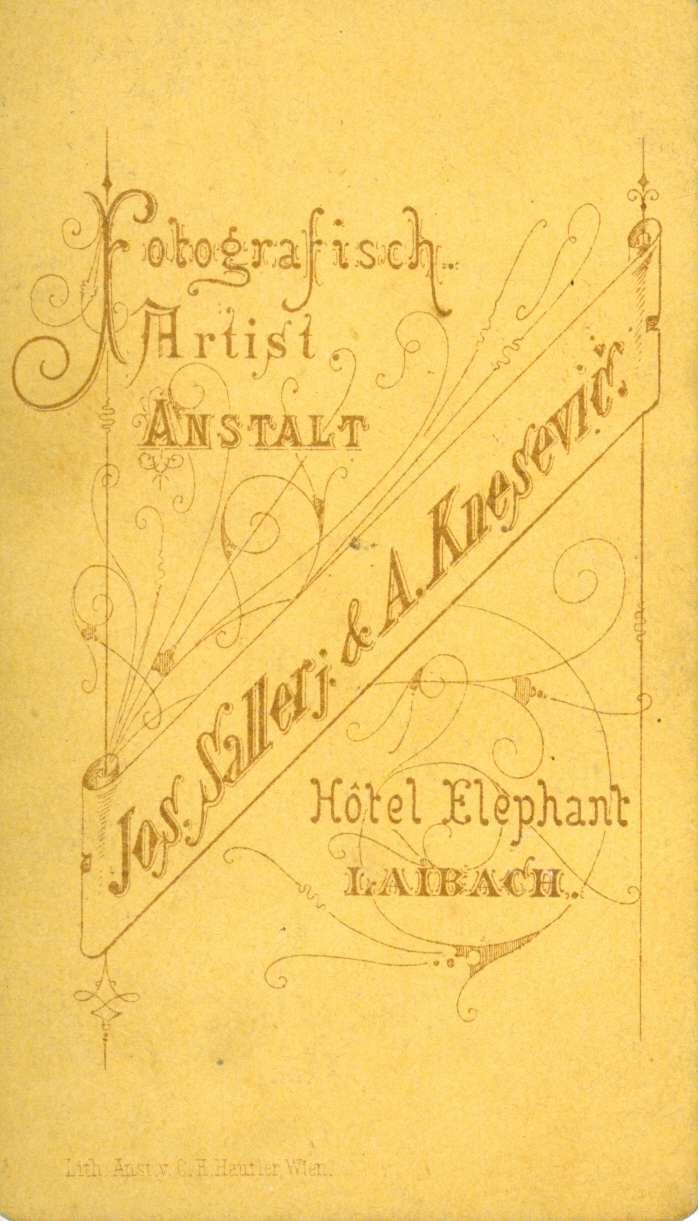 Fotografisch.
Artist.
ANSTALT
Jos. Sallerj. & A. Knesevič.
Hôtel Elephant
LAIBACH.
Lith. Anst. v. C. H. Haufler, Wien.